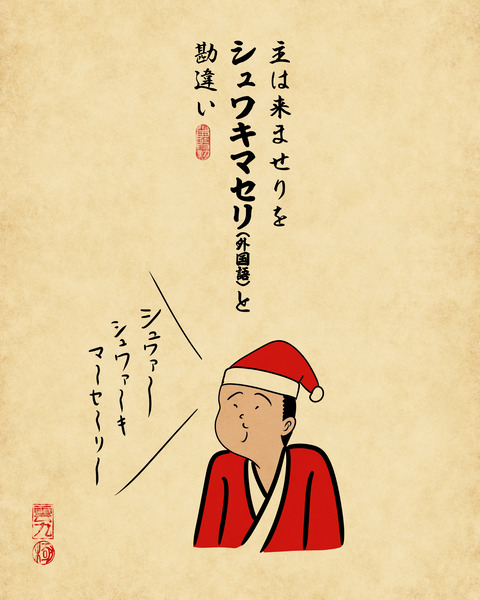 主は来ませりを
シュワキマセリ(外国語)と
勘違い
シュワァー
シュワァーキ
マーセーリー